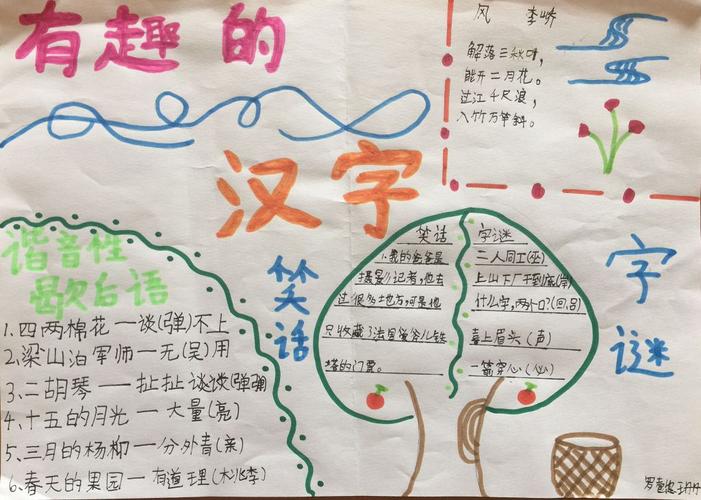 有趣的
汉字
风 李峤
解落三秋叶，
能开二月花。
过江千尺浪，
入竹万竿斜。
谐音性
歇后语
1.四两棉花一谈(弹)不上
2、梁山泊军师一无(吴)用
3、二胡琴一扯扯谈谈(弹弹)
4、十五的月光一大量(亮)
5、三月的杨柳一分外青(亲)
6、春天的果园一有道理(桃李)
笑话
笑话
1.我的爸爸是
摄影记者，他去
过很多地方可是他
只收藏了法国埃菲尔铁
塔的门票。
字谜
三人同工(巫)
上山下厂干到底(岸)
什么字，两个口?(回.吕)
喜上眉头(声)
一箭穿心(必)
字谜